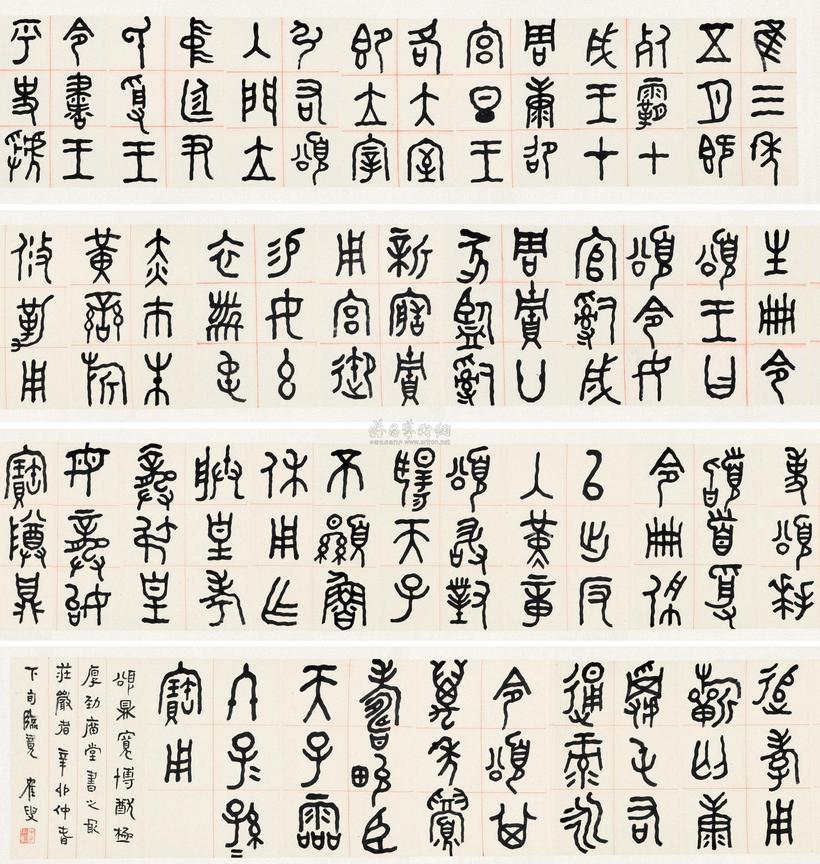 隹三年
五月既
死霸甲
戌王才
周康卲
宮旦王
各大室
即立宰
弘右頌
入門立
中廷尹
氏受王
令書王
乎史虢
生冊令
頌王曰
頌令女
官𤔲成
周貯廿
家監𤔲
新造貯
用宮御
易女玄
衣黹屯
赤巿朱
黃鑾旂
攸勒用
事頌拜
稽首受
令冊佩
以出反
入堇章
頌敢對
揚天子
不顯魯
休用乍
朕皇考
龏弔皇
母龏姒
寶尊鼎
追孝用
祈匄康
屯右
通彔永
令頌其
萬年眉
壽畯臣
天子霝
冬子=孫=
寶用
頌鼎寬博極
厚勁廟堂書之最
莊嚴者辛卯仲春
下旬臨竟